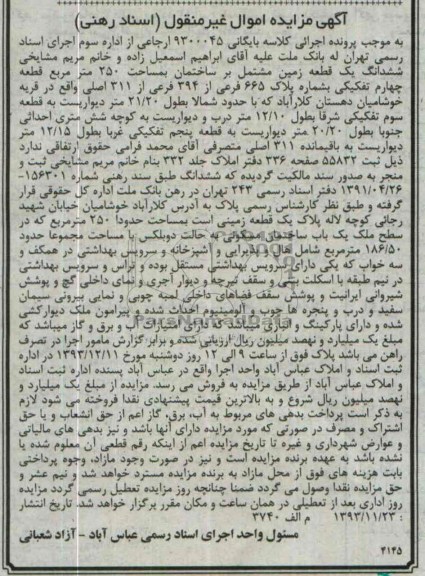 آگهی مزایده اموال غیرمنقول (اسناد رهنی)
به موجب پرونده اجرائی کلاسه بایگانی ۹۳۰۰۰۴۵ ارجاعی از اداره سوم اجرای اسناد
رسمی تهران له بانک ملت علیه آقای ابراهیم اسمعیل زاده و خانم مریم مشایخی
ششدانگ یک قطعه زمین مشتمل بر ساختمان بمساحت ۲۵۰ متر مربع قطعه
چهارم تفکیکی بشماره پلاک ۶۶۵ فرعی از ۳۹۴ فرعی از ۳۱۱ اصلی واقع در قریه
خوشامیان دهستان کلارآباد که با حدود شمالا بطول ۲۱/۲۰ متر دیواریست به قطعه
سوم تفکیکی شرقا بطول ۱۲/۱۰ متر درب و دیواریست به کوچه شش متری احداثی
جنوبا بطول ۲۰/۲۰ متر دیواریست به قطعه پنجم تفکیکی غربا بطول ۱۲/۱۵ متر
دیواریست به باقیمانده ۳۱۱ اصلی متصرفی آقای محمد فرامی حقوق ارتفاقی ندارد
ذیل ثبت ۵۵۸۳۲ صفحه ۳۳۶ دفتر املاک جلد ۳۳۲ بنام خانم مریم مشایخی ثبت و
منجر به صدور سند مالکیت گردیده که ششدانگ طبق سند رهنی شماره ۱۵۶۳۰۱-
۱۳۹۱/۰۴/۲۶ دفتر اسناد رسمی ۲۴۳ تهران در رهن بانک ملت اداره کل حقوقی قرار
گرفته و طبق نظر کارشناس رسمی پلاک به آدرس کلارآباد خوشامیان خیابان شهید
رجائی کوچه لاله پلاک یک قطعه زمینی است بمساحت حدودا ۲۵۰ مترمربع که در
سطح ملک یک باب ساختمان مسکونی به حالت دوبلکس با مساحت مجموعا حدود
۱۸۶/۵۰ مترمربع شامل هال و پذیرایی و آشپزخانه و سرویس بهداشتی در همکف و
سه خواب که یکی دارای سرویس بهداشتی مستقل بوده و تراس و سرویس بهداشتی
در نیم طبقه با اسکلت بتنی و سقف تیرچه و دیوار آجری و نمای داخلی گچ و پوشش
شیروانی ایرانیت و پوشش سقف فضاهای داخلی لمبه چوبی و نمایی بیرونی سیمان
سفید و درب و پنجره ها چوب و آلومینیوم احداث شده و پیرامون ملک دیوارکشی
شده و دارای پارکینگ و انباری میباشد که دارای امتیازات آب و برق و گاز میباشد که
مبلغ یک میلیارد و نهصد میلیون ریال ارزیابی شده و برابر گزارش مامور اجرا در تصرف
راهن می باشد پلاک فوق از ساعت ۹ الی ۱۲ روز دوشنبه مورخ ۱۳۹۳/۱۲/۱۱ در اداره
ثبت اسناد و املاک عباس آباد واحد اجرا واقع در عباس آباد پسنده اداره ثبت اسناد
و املاک عباس آباد از طریق مزایده به فروش می رسد. مزایده از مبلغ یک میلیارد و
نهصد میلیون ریال شروع و به بالاترین قیمت پیشنهادی نقدا فروخته می شود لازم
به ذکر است پرداخت بدهی های مربوط به آب، برق، گاز اعم از حق انشعاب و یا حق
اشتراک و مصرف در صورتی که مورد مزایده دارای آنها باشد و نیز بدهی های مالیاتی
و عوارض شهرداری و غیره تا تاریخ مزایده اعم از اینکه رقم قطعی آن معلوم شده یا
نشده باشد به عهده برنده مزایده است و نیز در صورت وجود مازاد، وجوه پرداختی
بابت هزینه های فوق از محل مازاد به برنده مزایده مسترد خواهد شد و نیم عشر و
حق مزایده نقدا وصول می گردد ضمنا چنانچه روز مزایده تعطیل رسمی گردد مزایده
روز اداری بعد از تعطیلی در همان ساعت و مکان مقرر برگزار خواهد شد. تاریخ انتشار
: ۱۳۹۳/۱۱/۲۳ م الف ۳۷۴۰
مسئول واحد اجرای اسناد رسمی عباس آباد - آزاد شعبانی
۴۱۴۵